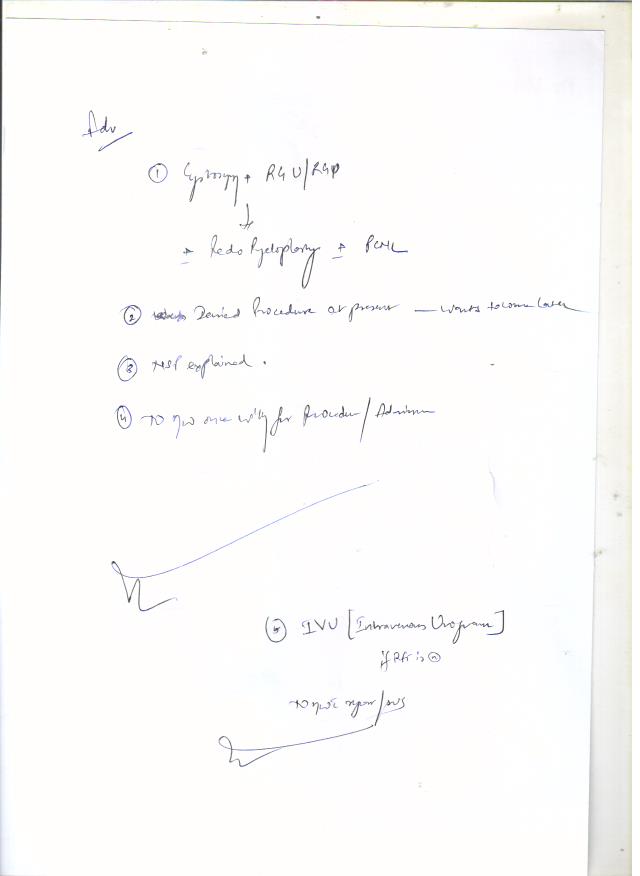 Adv
① Cystoscopy + RGU/RGP
↓
± Redo Pyeloplasty ± PCNL
② Denied Procedure at present — wants to come later
③ explained.
④ once for Procedure/Admission
⑤ IVU [Intravenous Urogram]
if RFT is Ⓝ